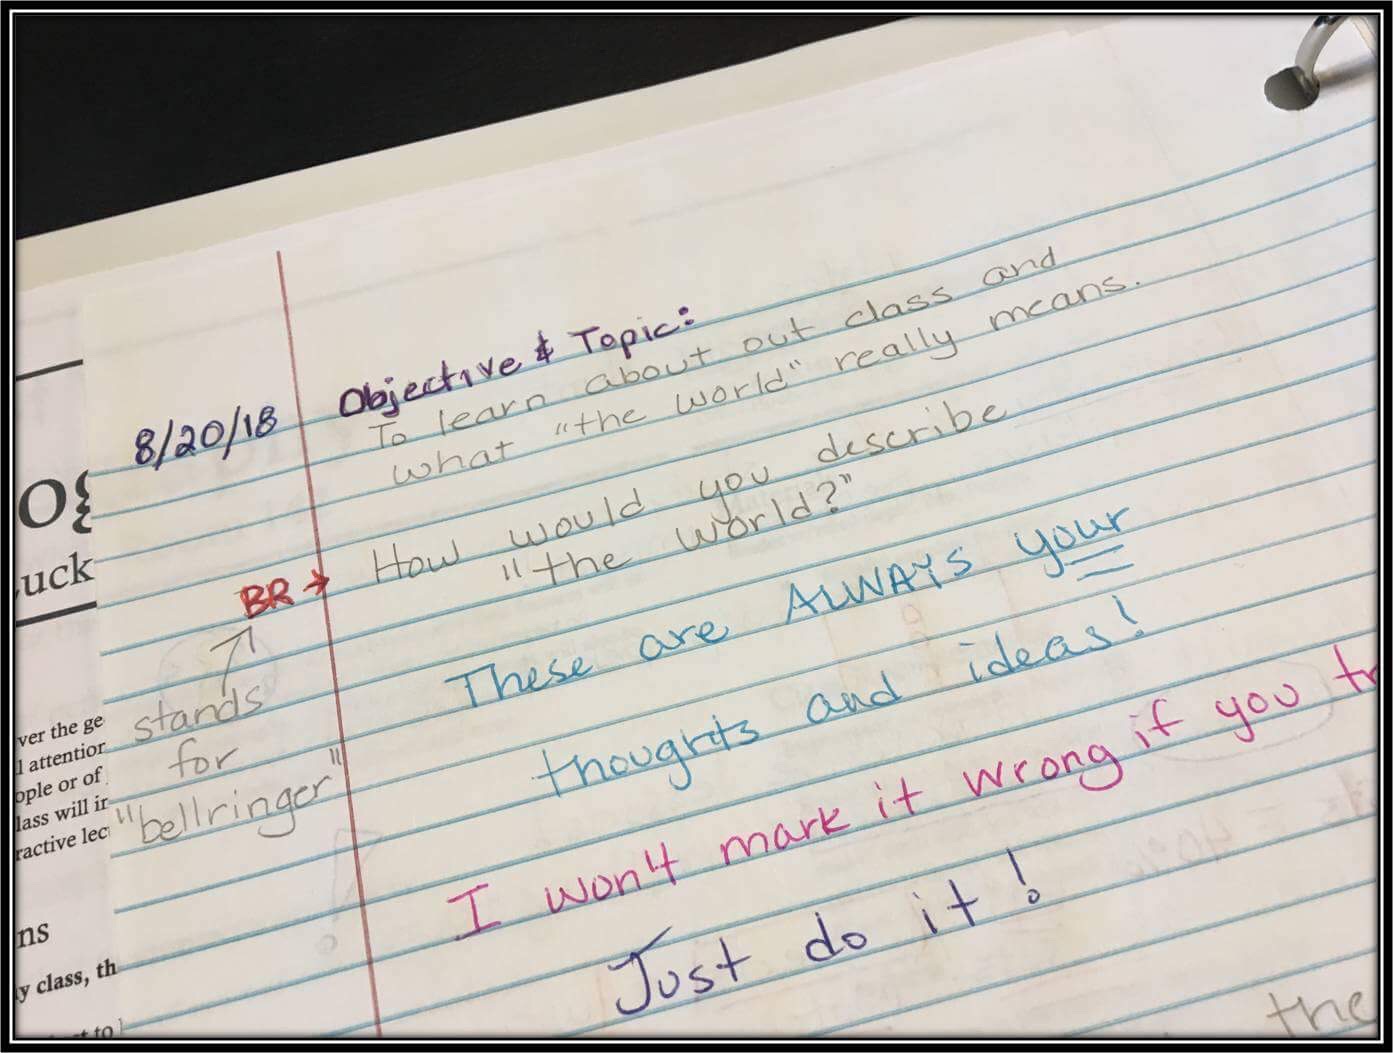 Objective & Topic:
8/20/18
To learn about out class and
what "the world" really means.
BR → How would you describe
"the world?"
stands
for
"bellringer"
These are ALWAYS your
thoughts and ideas!
I won't mark it wrong if you tr
Just do it!
the
O
uck
ver the ge
l attention
ople or of
lass will in
ractive lec
ns
y class, th
t to